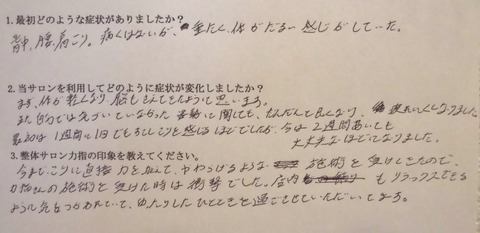 1.最初どのような症状がありましたか？
背中、腰、肩こり。痛くはないが、重たく、体がだるい感じがしていた。
2.当サロンを利用してどのように症状が変化しましたか？
まず、体が軽くなり、脳もさえてきたように思います。
また自分では気づいていなかった姿勢に関しても、だんだんと良くなり、疲れにくくなりました。
最初は1週間に1回でももしこりを感じるほどでしたが、今は2週間あいても
大丈夫なほどになりました。
3.整体サロン力指の印象を教えてください。
今までこりに直接力を加えて、やわらげるような施術を受けてきたので、
力指さんの施術を受けた時は衝撃でした。店内もリラックスできる
ように気をつかわれていて、ゆったりしたひとときを過ごさせていただいてます。